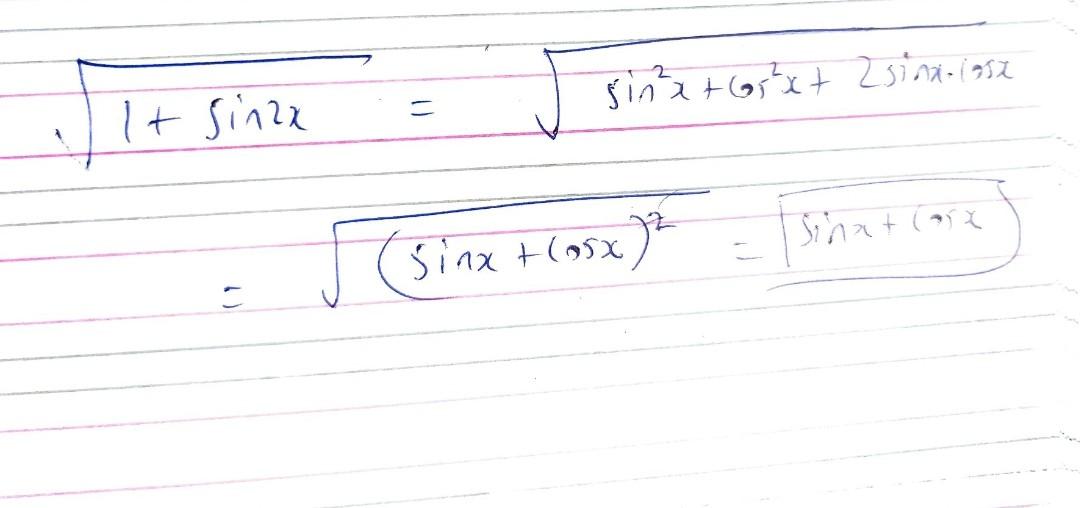 √(1 + sin2x) = √(sin²x + cos²x + 2sinx·cosx)
= √((sinx + cosx)²) = sinx + cosx